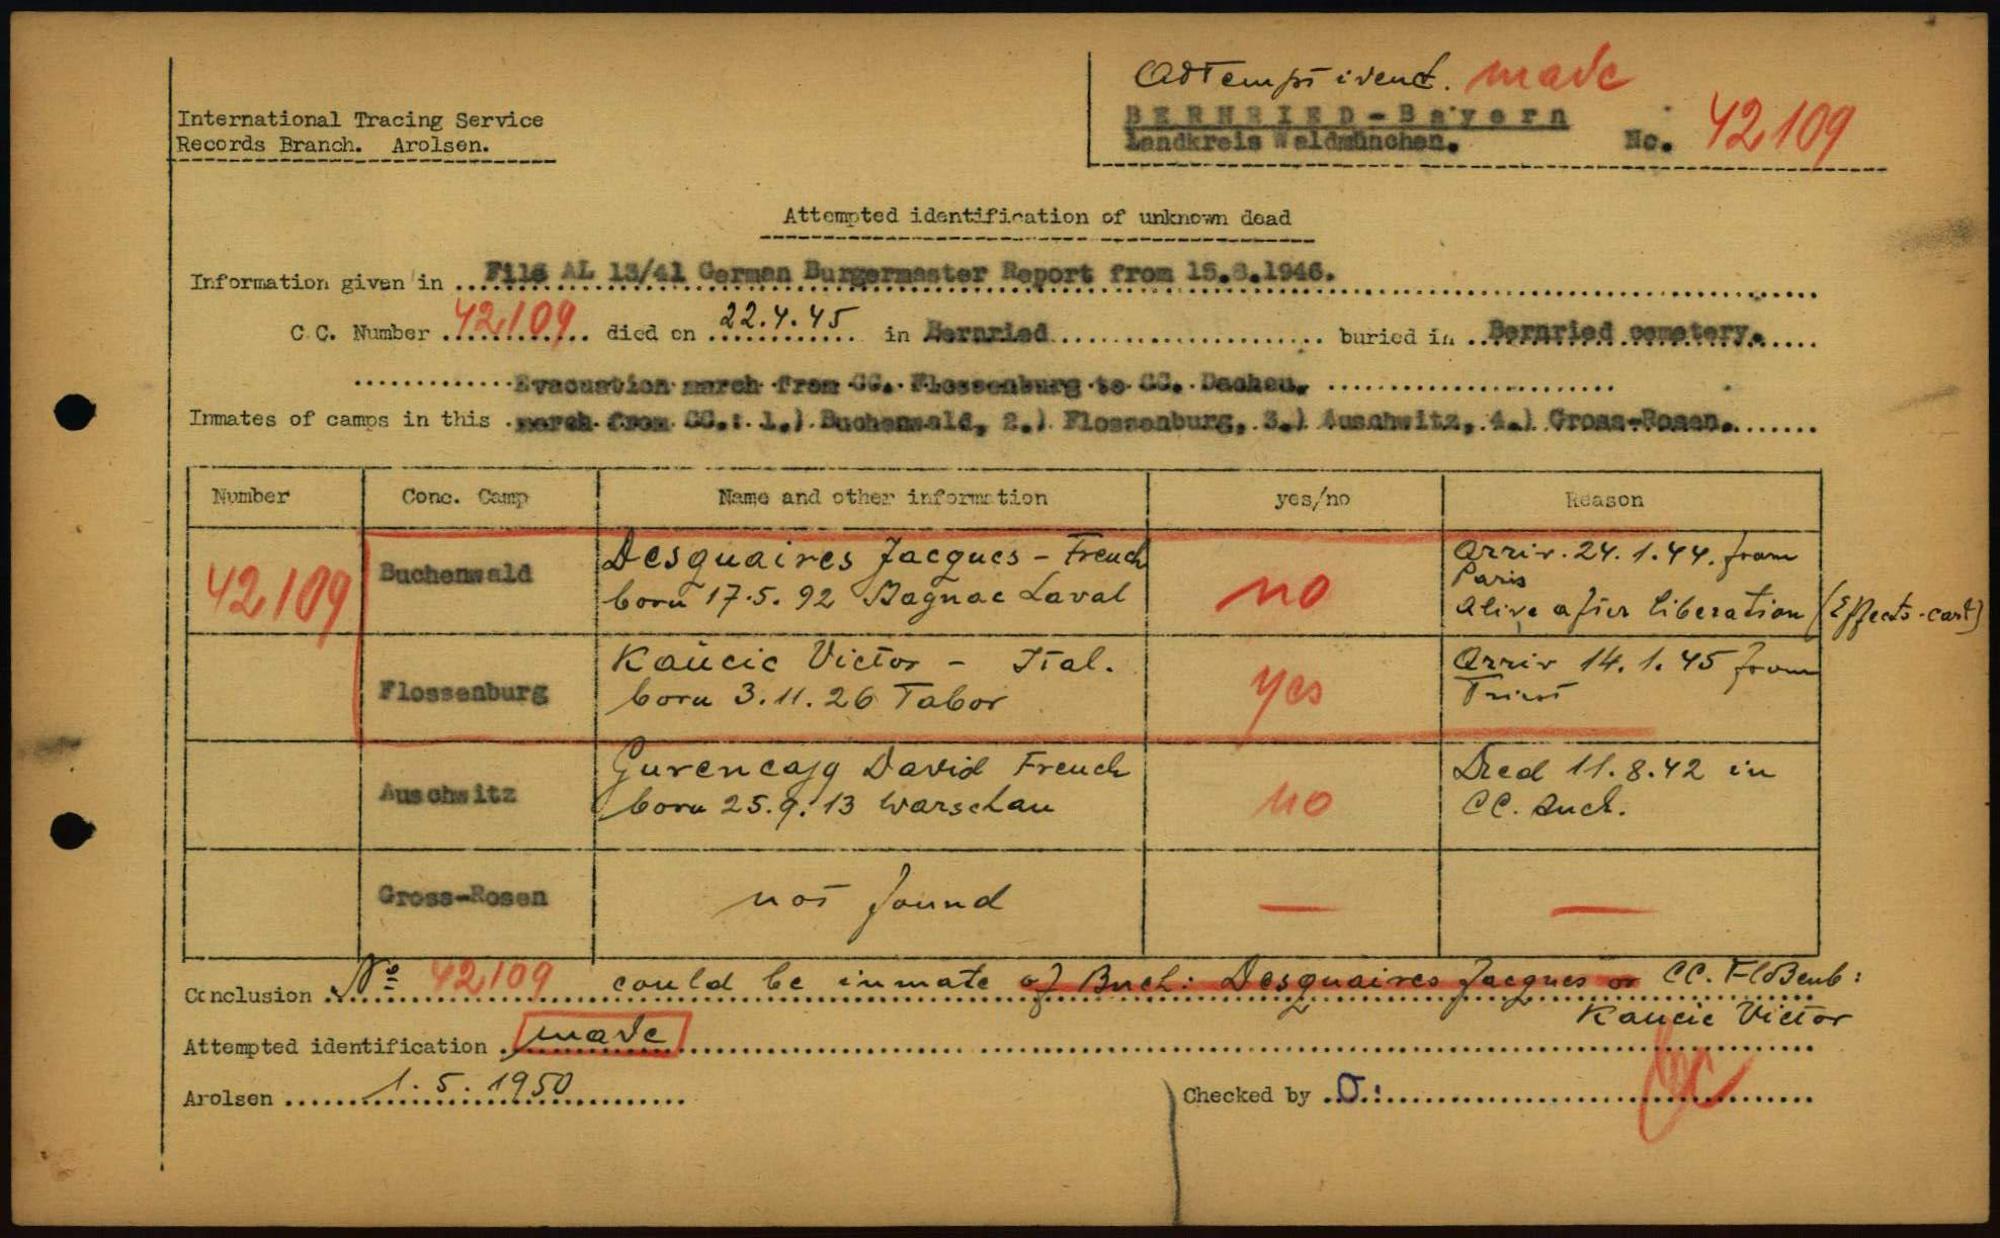 Attempt ident. made
International Tracing Service
Records Branch. Arolsen.
BERNRIED-Bayern
Landkreis Waldmünchen.
No. 42109
Attempted identification of unknown dead
Information given in File AL 13/41 German Burgermaster Report from 15.6.1946.
C.C. Number 42109 died on 22.4.45 in Bernried buried in Bernried cemetery.
Evacuation march from CC. Flossenburg to CC. Dachau.
Inmates of camps in this march from CC.: 1.) Buchenwald, 2.) Flossenburg, 3.) Auschwitz, 4.) Gross-Rosen.
Number Conc. Camp Name and other information yes/no Reason
42109 Buchenwald
Desquaires Jacques - French
born 17.5.92 Bagnac Laval
no
Arriv. 24.1.44. from
Paris
Alive after liberation (Effects-card)
Flossenburg
Kaucic Victor - Ital.
born 3.11.26 Tabor
yes
Arriv 14.1.45 from
Triest
Auschwitz
David French
born 25.9.13 Warschau
no
Died 11.8.42 in
CC. Auch.
Gross-Rosen not found — —
Conclusion No 42109 could be inmate of Buch: Desquaires Jacques or CC. Floßenb:
Kaucic Victor
Attempted identification made
Arolsen 1.5.1950
Checked by